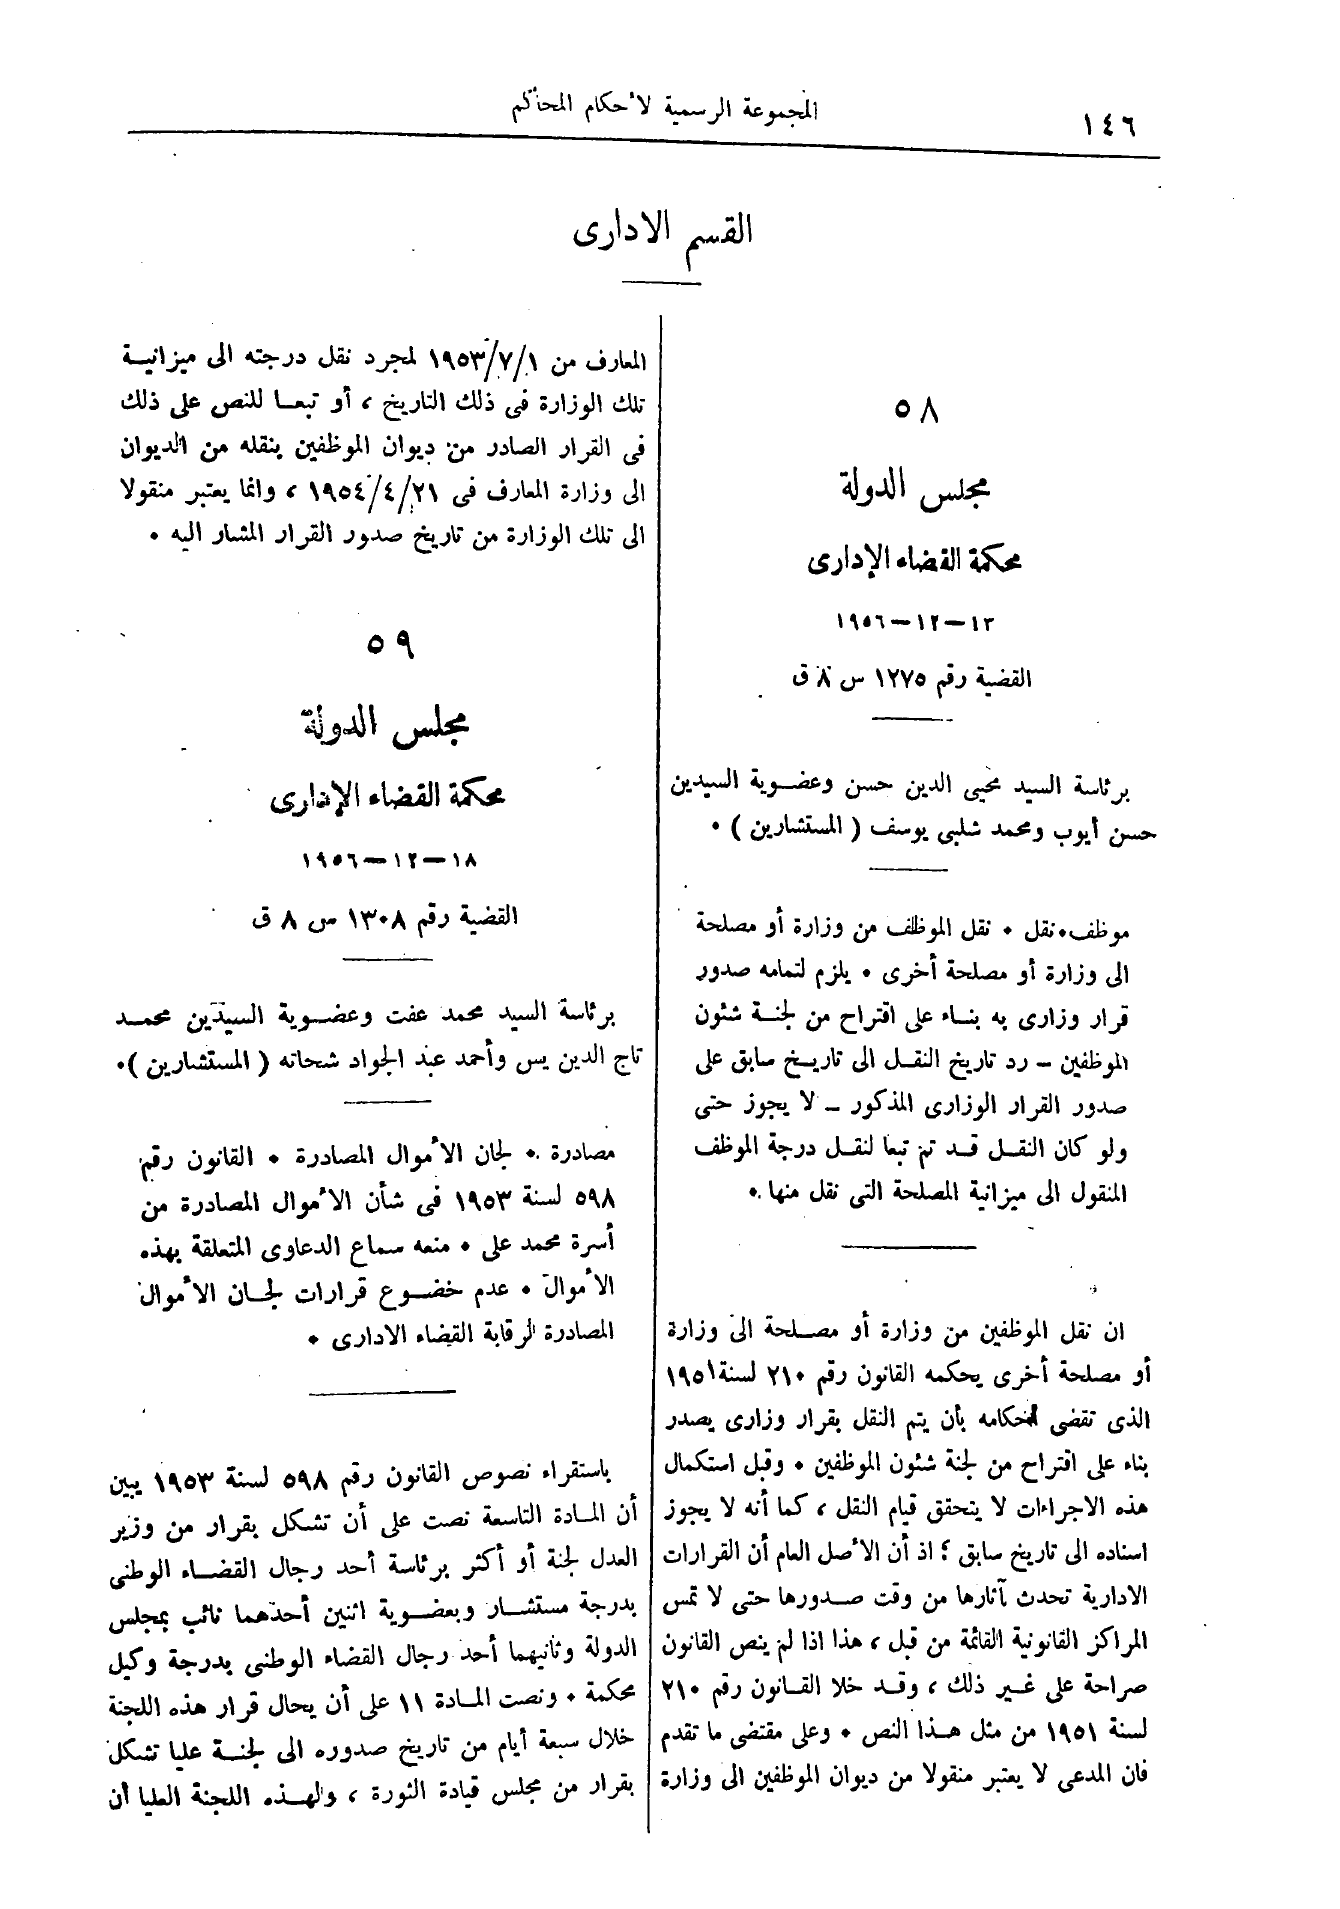 ١٤٦
المجموعة الرسمية لأحكام المحاكم
القسم الادارى
٥٨
مجلس الدولة
محكمة القضاء الإدارى
١٣–١٢–١٩٥٦
القضية رقم ١٢٧٥ س ٨ ق
برئاسة السيد محيى الدين حسن وعضوية السيدين
حسن أيوب ومحمد شلبى يوسف ( المستشارين ) ٠
موظف٠نقل ٠ نقل الموظف من وزارة أو مصلحة
الى وزارة أو مصلحة أخرى ٠ يلزم لتمامه صدور
قرار وزارى به بناء على اقتراح من لجنة شئون
الموظفين – رد تاريخ النقل الى تاريخ سابق على
صدور القرار الوزارى المذكور – لا يجوز حتى
ولو كان النقل قد تم تبعا لنقل درجة الموظف
المنقول الى ميزانية المصلحة التى نقل منها ٠
ان نقل الموظفين من وزارة أو مصلحة الى وزارة
أو مصلحة أخرى يحكمه القانون رقم ٢١٠ لسنة ١٩٥١
الذى تقضى أحكامه بأن يتم النقل بقرار وزارى يصدر
بناء على اقتراح من لجنة شئون الموظفين ٠ وقبل استكمال
هذه الاجراءات لا يتحقق قيام النقل ، كما أنه لا يجوز
اسناده الى تاريخ سابق ؛ اذ أن الأصل العام أن القرارات
الادارية تحدث آثارها من وقت صدورها حتى لا تمس
المراكز القانونية القائمة من قبل ، هذا اذا لم ينص القانون
صراحة على غير ذلك ، وقد خلا القانون رقم ٢١٠
لسنة ١٩٥١ من مثل هذا النص ٠ وعلى مقتضى ما تقدم
فان المدعى لا يعتبر منقولا من ديوان الموظفين الى وزارة
المعارف من ١/٧/١٩٥٣ لمجرد نقل درجته الى ميزانية
تلك الوزارة فى ذلك التاريخ ، أو تبعا للنص على ذلك
فى القرار الصادر من ديوان الموظفين بنقله من الديوان
الى وزارة المعارف فى ٢١/٤/١٩٥٤ ، وانما يعتبر منقولا
الى تلك الوزارة من تاريخ صدور القرار المشار اليه ٠
٥٩
مجلس الدولة
محكمة القضاء الإدارى
١٨–١٢–١٩٥٦
القضية رقم ١٣٠٨ س ٨ ق
برئاسة السيد محمد عفت وعضوية السيدين محمد
تاج الدين يس وأحمد عبد الجواد شحاته ( المستشارين )٠
مصادرة ٠ لجان الأموال المصادرة ٠ القانون رقم
٥٩٨ لسنة ١٩٥٣ فى شأن الأموال المصادرة من
أسرة محمد على ٠ منعه سماع الدعاوى المتعلقة بهذه
الأموال ٠ عدم خضوع قرارات لجان الأموال
المصادرة لرقابة القضاء الادارى ٠
باستقراء نصوص القانون رقم ٥٩٨ لسنة ١٩٥٣ يبين
أن المادة التاسعة نصت على أن تشكل بقرار من وزير
العدل لجنة أو أكثر برئاسة أحد رجال القضاء الوطنى
بدرجة مستشار وبعضوية اثنين أحدهما نائب بمجلس
الدولة وثانيهما أحد رجال القضاء الوطنى بدرجة وكيل
محكمة ٠ ونصت المادة ١١ على أن يحال قرار هذه اللجنة
خلال سبعة أيام من تاريخ صدوره الى لجنة عليا تشكل
بقرار من مجلس قيادة الثورة ، ولهذه اللجنة العليا أن